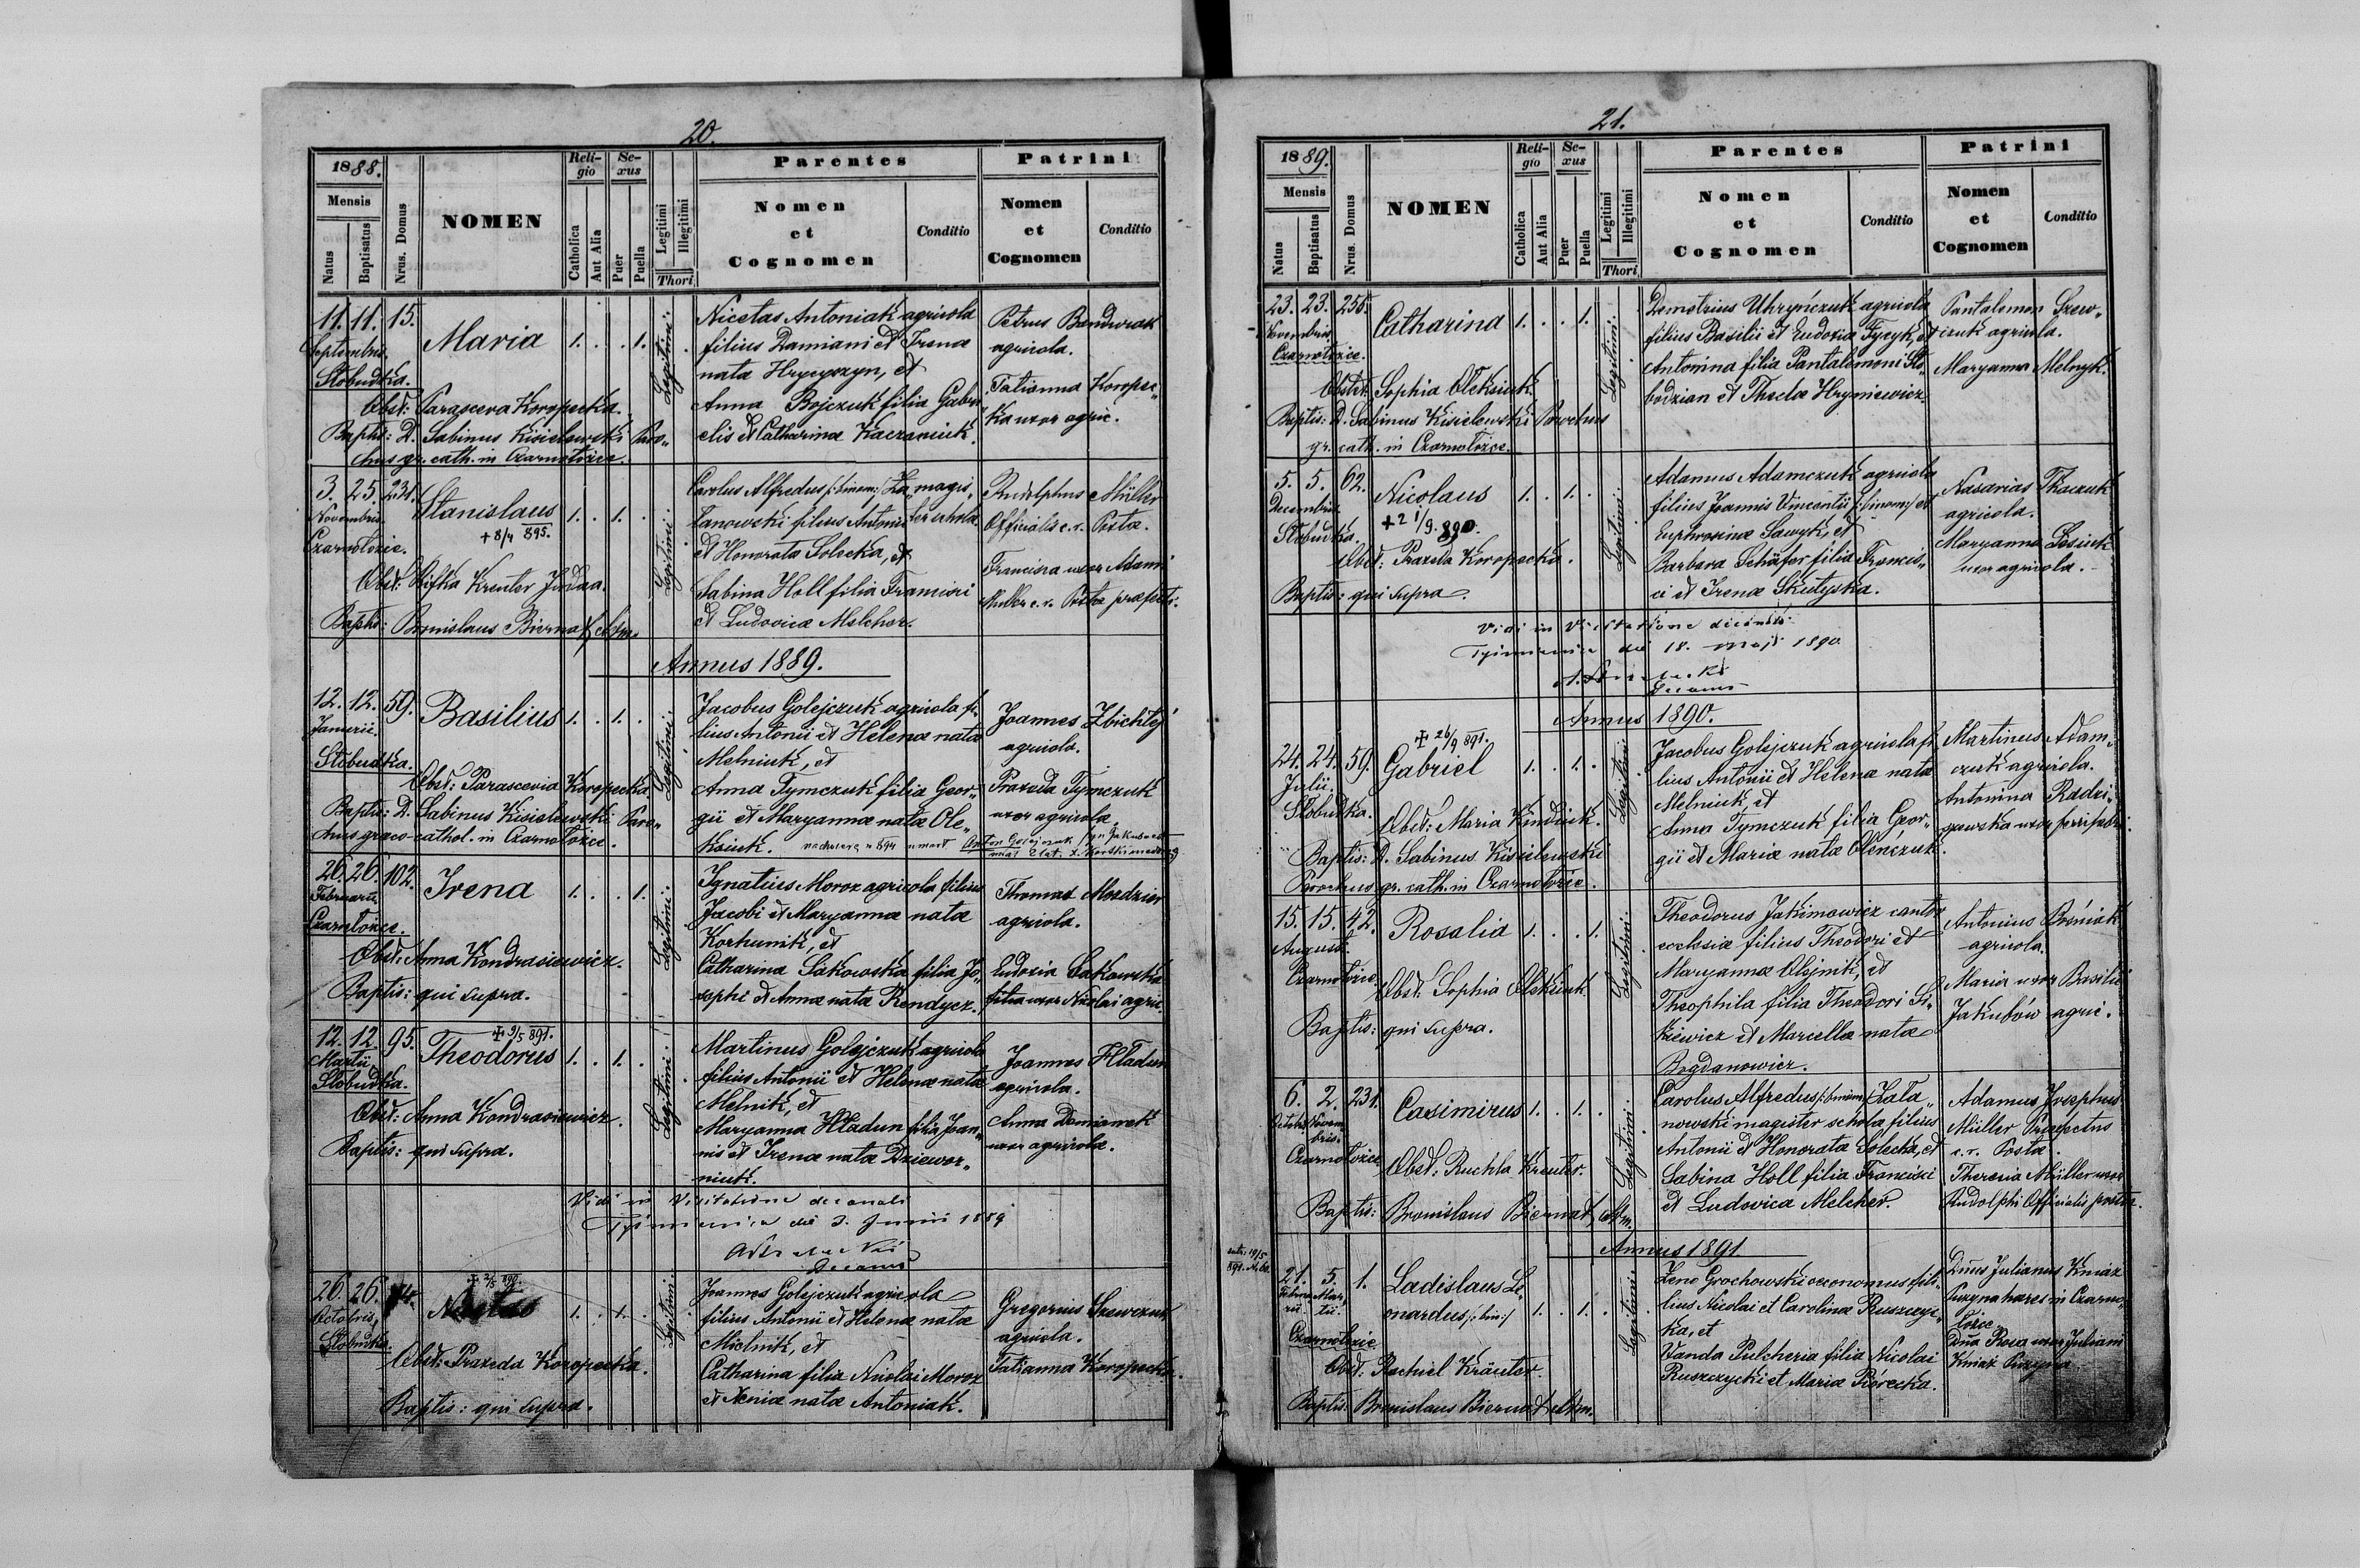 20.
1888.
Mensis
Natus
Baptisatus
Nrus. Domus
NOMEN
Reli-
gio
Catholica
Aut Alia
Se-
xus
Puer
Puella
Legitimi
Illegitimi
Thori
Parentes
Nomen
et
Cognomen
Conditio
Patrini
Nomen
et
Cognomen
Conditio
11. 11. 15.
Septembris.
Slobudka.
Maria
1. . . 1.
Legitimi.
Obst: Parasceva Koropecka.
Baptis: D. Sabinus Kisielewski Paro„
chus gr. cath. in Czarnołozce.
Nicetas Antoniak agricola
filius Damiani et Irenæ
nata Hrycyszyn, et
Anna Bojczuk filia Gabri„
elis et Catharinæ Kaczaniuk.
Petrus
agricola.
Tatianna Koropec„
ka uxor agric.
3. 25. 231.
Novembris.
Czarnołozce.
Stanislaus
+ 8/4 895.
1. . 1. .
Legitimi.
Obst: Rifka Kreuter Judæa.
Baptis: Bronislaus Biernat
Carolus Alfredus /:binom:/ Za magis„
tanowski filius Antonii ter scholæ
et Honorata Solecka, et
Sabina Holl filia Francisci
et Ludovica Melcher.
Rudolphus Müller
Officialis c. r. Postæ.
Francisca uxor Adami
Müller c. r. Postæ præfecti.
Annus 1889.
12. 12. 59.
Januarii.
Slobudka.
Basilius
1. . 1. .
Legitimi.
Obst: Parascevia Koropecka.
Baptis: D. Sabinus Kisielewski Paro„
chus græco-cathol. in Czarnołozce.
Jacobus Golejczuk agricola fi„
lius Antonii et Helenæ nata
Melniuk, et
Anna Tymczuk filia Geor„
gii et Maryannæ nata Ole„
ksiuk.
Joannes Zbichlej
agricola.
Praxeda Tymczuk
uxor agricola.
26. 26. 102.
Februarii.
Czarnołozce.
Irena
1. . . 1.
Legitimi.
Obst: Anna Kondrasiewicz.
Baptis: qui supra.
Ignatius Moroz agricola filius
Jacobi et Maryannæ nata
Korhunik, et
Catharina Sakowska filia Jo„
sephi et Annæ nata Rendycz.
Thomas Mozdzier
agricola.
Eudoxia Sakowska
filia uxor Nicolai agric.
12. 12. 95.
Martii
Slobudka.
+ 9/5 891.
Theodorus
1. . 1. .
Legitimi.
Obst: Anna Kondrasiewicz.
Baptis: qui supra.
Martinus Golejczuk agricola
filius Antonii et Helenæ nata
Melnik, et
Maryanna Hładun filia Joan„
nis et Irenæ nata Dziewor„
niuk.
Joannes Hładun
agricola.
Anna Damianek
uxor agricola.
Vidi in Visitatione decanali
die 3. Junii 1889
Decanus
26. 26.
Octobris,
Slobudka.
+ 2/5 890.
1. . 1. .
Legitimi.
Obst: Praxeda Koropecka.
Baptis: qui supra.
Joannes Golejczuk agricola
filius Antonii et Helenæ nata
Mielnik, et
Catharina filia Nicolai Moroz
et Xenia nata Antoniak.
Gregorius Szewczuk
agricola.
Tatianna Koropecka.
21.
1889.
Mensis
Natus
Baptisatus
Nrus. Domus
NOMEN
Reli-
gio
Catholica
Aut Alia
Se-
xus
Puer
Puella
Legitimi
Illegitimi
Thori
Parentes
Nomen
et
Cognomen
Conditio
Patrini
Nomen
et
Cognomen
Conditio
23. 23. 256.
Novembris
Czarnołozce.
Catharina
1. . . 1.
Legitimi.
Obstet: Sophia Oleksiuk.
Baptis: D. Sabinus Kisielewski Parochus
gr. cath. in Czarnołozce.
Demetrius Uhryńczuk agricola
filius Basilii et Eudoxiæ Fycyk, et
Antonina filia Pantalemoni Sło„
bodzian et Theclæ Hryniewicz.
Pantalemon Szew„
czuk agricola.
Maryanna Melnyk.
5. 5. 62.
Decembris
Slobudka.
Nicolaus
+ 21/9. 890.
1. . 1. .
Legitimi.
Obst: Praxeda Koropecka.
Baptis: qui supra.
Adamus Adamczuk agricola
filius Joannis Vincentii /:binom:/ et
Euphrosinæ Sawyk, et
Barbara Schäfer filia Francis„
ci et Irenæ Skutyska.
Nasarias Tkaczuk
agricola.
Maryanna Łosiuk
uxor agricola.
Vidi in Visitatione
die 18. Maji 1890
Decanus
Annus 1890.
24. 24. 59.
Julii.
Slobudka.
+ 26/9 891.
Gabriel
1. . 1. .
Legitimi.
Obst: Maria Kindiuk.
Baptis: D. Sabinus Kisielewski
Parochus gr. cath. in Czarnołozce.
Jacobus Golejczuk agricola fi„
lius Antonii et Helenæ nata
Melniuk, et
Anna Tymczuk filia Geor„
gii et Mariæ nata Oleńczuk.
Martinus Adam„
czuk agricola.
Antonina Radzi„
15. 15. 42.
Augusti.
Czarnołozce
Rosalia
1. . . 1.
Legitimi.
Obst: Sophia Oleksiuk.
Baptis: qui supra.
Theodorus Jakimowicz cantor
ecclesiæ filius Theodori et
Maryannæ Olejnik, et
Theophila filia Theodori Si„
kiewicz et Marcella nata
Bogdanowicz.
Antonius Bośniak
agricola.
Maria uxor Basilii
Jakubów agric.
6. 2. 231.
Octobris Novem
bris.
Czarnołozce
Casimirus
1. . 1. .
Legitimi.
Obst: Ruchla Kreuter.
Baptis: Bronislaus Biernat
Carolus Alfredus /:binom:/ Zata„
nowski magister scholæ filius
Antonii et Honorata Solecka, et
Sabina Holl filia Francisci
et Ludovica Melcher.
Adamus Josephus
Müller Præfectus
c. r. Postæ.
Theresia Müller uxor
Rudolphi Officialis postæ.
Annus 1891
21. 5. 1.
Februa
rii Mar
tii
Czarnołozce
Ladislaus Le„
onardus /:bin:/
1. . 1. .
Legitimi.
Obst: Rachiel Kräuter.
Baptis: Bronislaus Biernat
Zeno Grochowski œconomus fili„
lius Nicolai et Carolinæ Ruszczyc„
ka, et
Wanda Pulcheria filia Nicolai
Ruszczycki et Mariæ Piórecka.
Dnus Julianus Kniaź
Puzyna hæres in Czarno„
łozce.
Dna Rosa uxor Juliani
Kniaź Puzyna